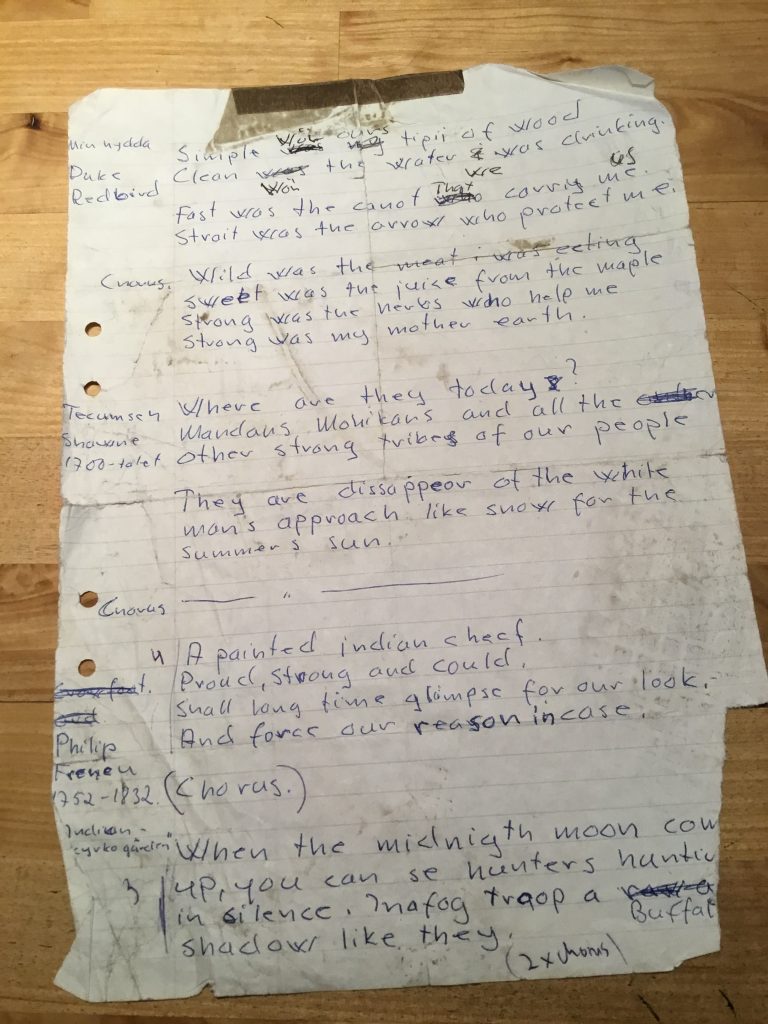 Min hydda
Duke
Redbird
Simple was ours tipii of wood
Clean was the water i was drinking.
wre us
Fast was the canot That carriy me.
Strait was the arrow who protect me.
Chorus. Wild was the meat i was eeting
sweet was the juise from the maple
strong was the herbs who help me
strong was my mother earth.
Tecumseh
Shawane
1700-talet
Where are they today?
Mandans Mohikans and all the
other strong tribes of our people
They are dissappeor of the white
man's approach like snow for the
summers sun.
Chorus "
4 A painted indian cheef.
Proud, strong and could.
Shall long time glimpse for our look.
And force our reason in case.
Philip
Freneu
1752-1832.
(Chorus.)
Indian-
When the midnigth moon com
3 up, you can se hunters huntin
in silence. In a fog traop a
Buffal
shadow like they.
(2x chorus)